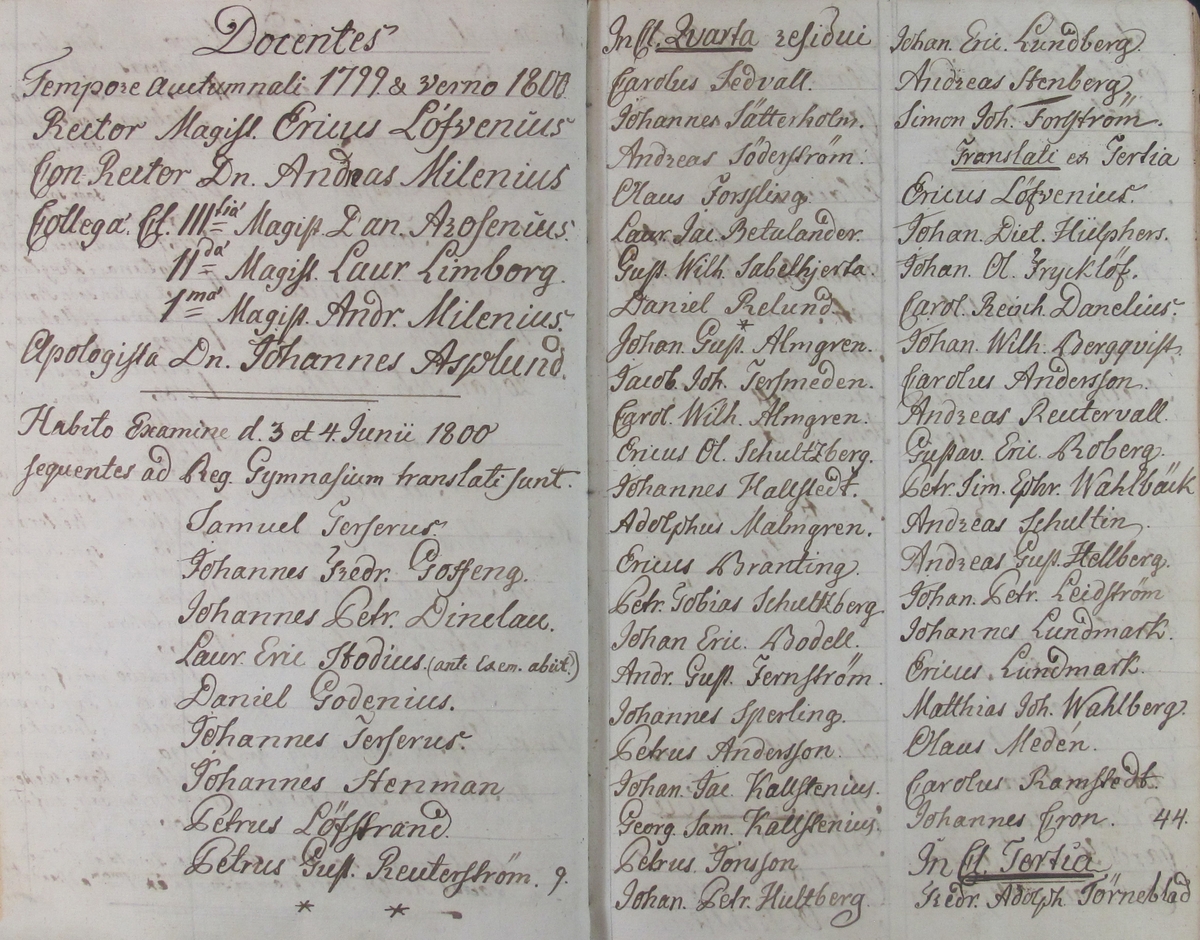 Docentes
Tempore Autumnali 1799 & verno 1800.
Rector Magist. Ericus Löfvenius
Con-Rector Dn. Andreas Milenius
Collega. Cl. III tia Magist. Dan. Arosenius.
II da Magist. Laur. Limborg.
1 ma Magist. Andr. Milenius.
Apologista Dn. Johannes Asplund.
Habito Examine d. 3 et 4 Junii 1800
sequentes ad Reg. Gymnasium translati sunt.
Samuel Terserus.
Johannes Fredr. Goffeng.
Johannes Petr. Dinelau.
Laur. Eric Hodius. (ante Exam. abiit.)
Daniel Godenius.
Johannes Terserus.
Johannes Stenman
Petrus Löfstrand
Petrus Gust. Reuterström. 9.
* *
In Cl. Quarta residui
Carolus Sedvall.
Johannes Sätterholm.
Andreas Söderström.
Olaus Forssling.
Laur. Jac. Betulander.
Gust. Wilh. Sabelhjerta.
Daniel Relund.
Johan. Gust. Almgren.
Jacob. Joh. Tersmeden.
Carol. Wilh. Almgren.
Ericus Ol. Schultzberg.
Johannes Hallstedt.
Adolphus Malmgren.
Ericus Branting.
Petr. Tobias Schultzberg.
Johan Eric. Bodell.
Andr. Gust. Fernström.
Johannes Sperling.
Petrus Andersson.
Johan. Jac. Kallstenius.
Georg. Sam. Kallstenius.
Petrus Jonsson
Johan. Petr. Hultberg.
Johan. Eric. Lundberg.
Andreas Stenberg.
Simon Joh. Forström.
Translati ex Tertia
Ericus Löfvenius.
Johan. Diet. Hülphers.
Johan. Ol. Frycklöf.
Carol. Reinh. Danelius.
Johan. Wilh. Bergqvist.
Carolus Andersson.
Andreas Reutervall.
Gustav. Eric. Boberg.
Petr. Sim. Ephr. Wahlbäck
Andreas Schultin.
Andreas Gust. Hellberg.
Johan. Petr. Leidström
Johannes Lundmark.
Ericus Lundmark.
Matthias Joh. Wahlberg.
Olaus Medén.
Carolus Ramstedt.
Johannes Cron. 44.
In Cl. Tertia
Fredr. Adolph Törneblad